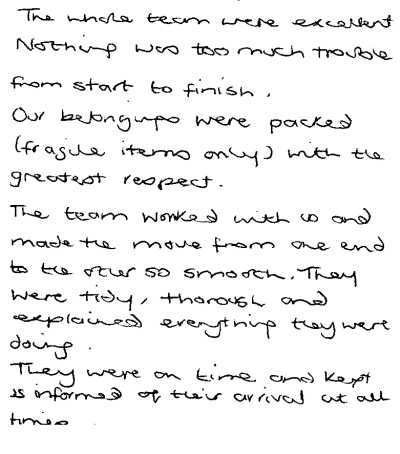 The whole team were excellent
Nothing was too much trouble
from start to finish.
Our belongings were packed
(fragile items only) with the
greatest respect.
The team worked with us and
made the move from one end
to the other so smooth. They
were tidy, thorough and
explained everything they were
doing.
They were on time and kept
us informed of their arrival at all
times.